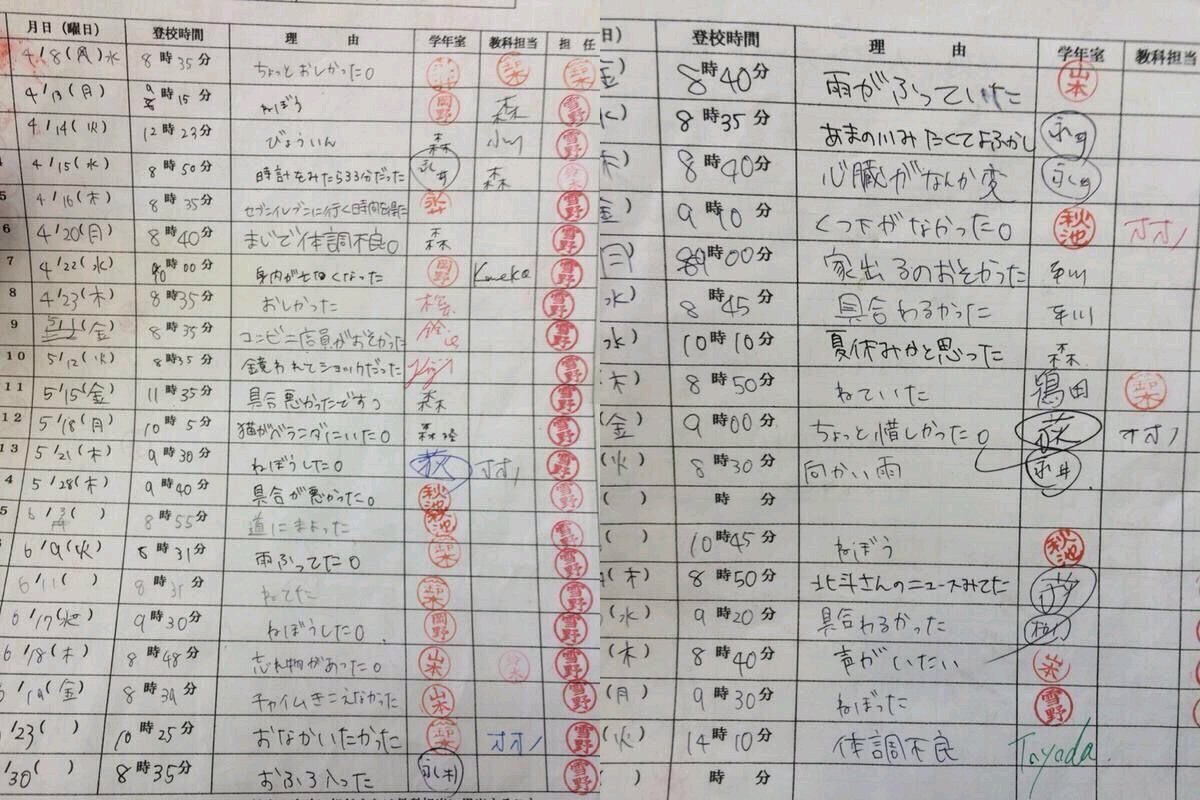 月日（曜日） 登校時間 理由 学年室 教科担当 担任
4/8(月)水 8時35分 ちょっとおしかった。 鈴木 鈴木
4/13(月) 9時15分 ねぼう 岡野 森 雪野
4/14(火) 12時23分 びょういん 森 小川 雪野
4/15(水) 8時50分 時計をみたら33分だった 永井 森
5 4/16(木) 8時35分 セブンイレブンに行く時間を得た 永井 雪野
6 4/20(月) 8時40分 まじで体調不良。 森 雪野
7 4/22(水) 10時00分 身内が亡くなった 岡野 Kaneko 雪野
8 4/23(木) 8時35分 おしかった 雪野
9 (金) 8時35分 コンビニ店員がおそかった 雪野
10 5/12(火) 8時35分 鏡われてショックだった 雪野
11 5/15(金) 11時35分 具合悪かったですっ 森 雪野
12 5/18(月) 10時5分 猫がベランダにいた。 森 雪野
13 5/21(木) 9時30分 ねぼうした。 荻 オオノ 雪野
4 5/28(木) 9時40分 具合が悪かった。 秋池 雪野
5 6/3( ) 8時55分 道にまよった 秋池 雪野
6/9(火) 8時31分 雨ふってた。 鈴木 雪野
6/11( ) 8時35分 ねてた 鈴木 雪野
6/17(水) 9時30分 ねぼうした。 岡野 雪野
6/18(木) 8時48分 忘れ物があった。 山本 雪野
6/19(金) 8時39分 チャイムきこえなかった 山本 雪野
/23( ) 10時25分 おなかいたかった 鈴木 オオノ 雪野
/30( ) 8時35分 おふろ入った 永井 雪野
日） 登校時間 理由 学年室 教科担当
金) 8時40分 雨がふっていた 山本
水) 8時35分 あまの川みたくてよふかし 永井
木) 8時40分 心臓がなんか変 永井
金) 9時10分 くつ下がなかった。 秋池 オオノ
月) 9時00分 家出るのおそかった 平川
水) 8時45分 具合わるかった 平川
水) 10時10分 夏休みかと思った 森
(木) 8時50分 ねていた 鴇田 鈴木
(金) 9時00分 ちょっと惜しかった。 荻 オオノ
(火) 8時30分 向かい雨 永井
( ) 時分
( ) 10時45分 ねぼう 秋池
(木) 8時50分 北斗さんのニュースみてた
(水) 9時20分 具合わるかった
(木) 8時40分 声がいたい 山本
(月) 9時30分 ねぼった 雪野
(火) 14時10分 体調不良 Toyoda
( ) 時分